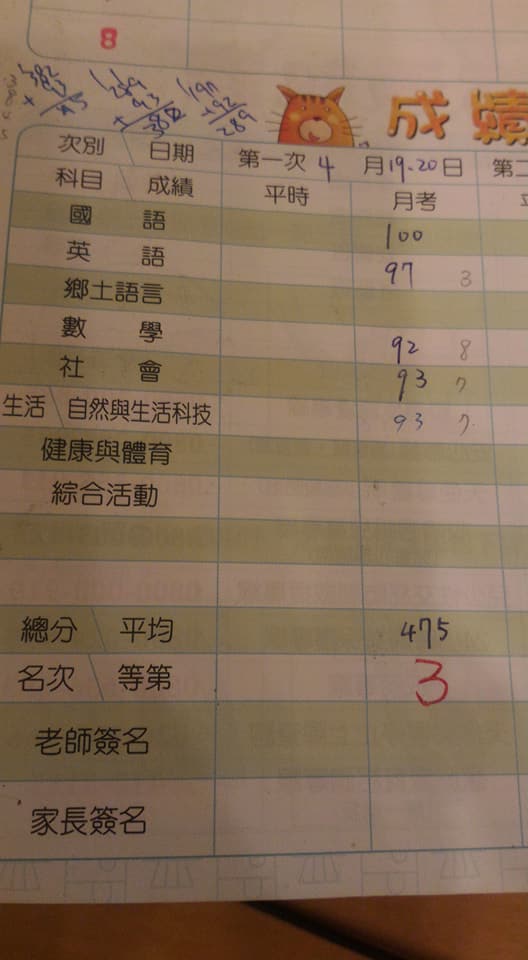 8
197
+92
289
成績
次別 日期 第一次 4 月19.20日 第二
科目 成績 平時 月考
國語 100
英語 97 3
鄉土語言
數學 92 8
社會 93 7
生活 自然與生活科技 93 7
健康與體育
綜合活動
總分 平均 475
名次 等第 3
老師簽名
家長簽名